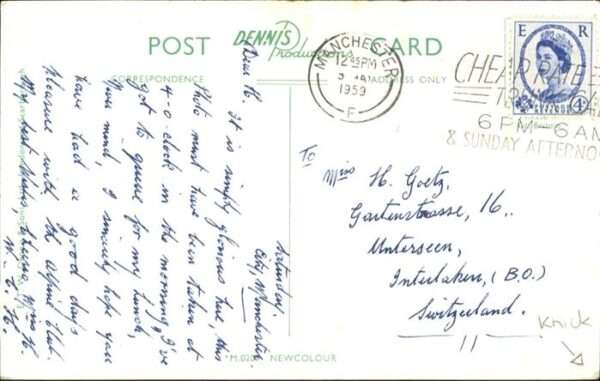 POST CARD
DENNIS
Productions
CORRESPONDENCE
ADDRESS ONLY
MANCHESTER
12 45 PM
1959
F
E R
4D
CHEAP RATE
6 PM — 6 AM
& SUNDAY AFTERNOO
Saturday.
City, Manchester
Dear H. It is simply glorious here, this
Photo must have been taken at
4-o-clock in the morning, I've
got to queue for my lunch,
you mind, I sincerely hope you
have had a good day's
pleasure with the Alpine Club.
My best Wishes,
W. E. H.
To
Miss H. Goetz,
Gartenstrasse, 16.
Unterseen,
Interlaken, (B.O.)
Switzerland.
NEWCOLOUR
Knick